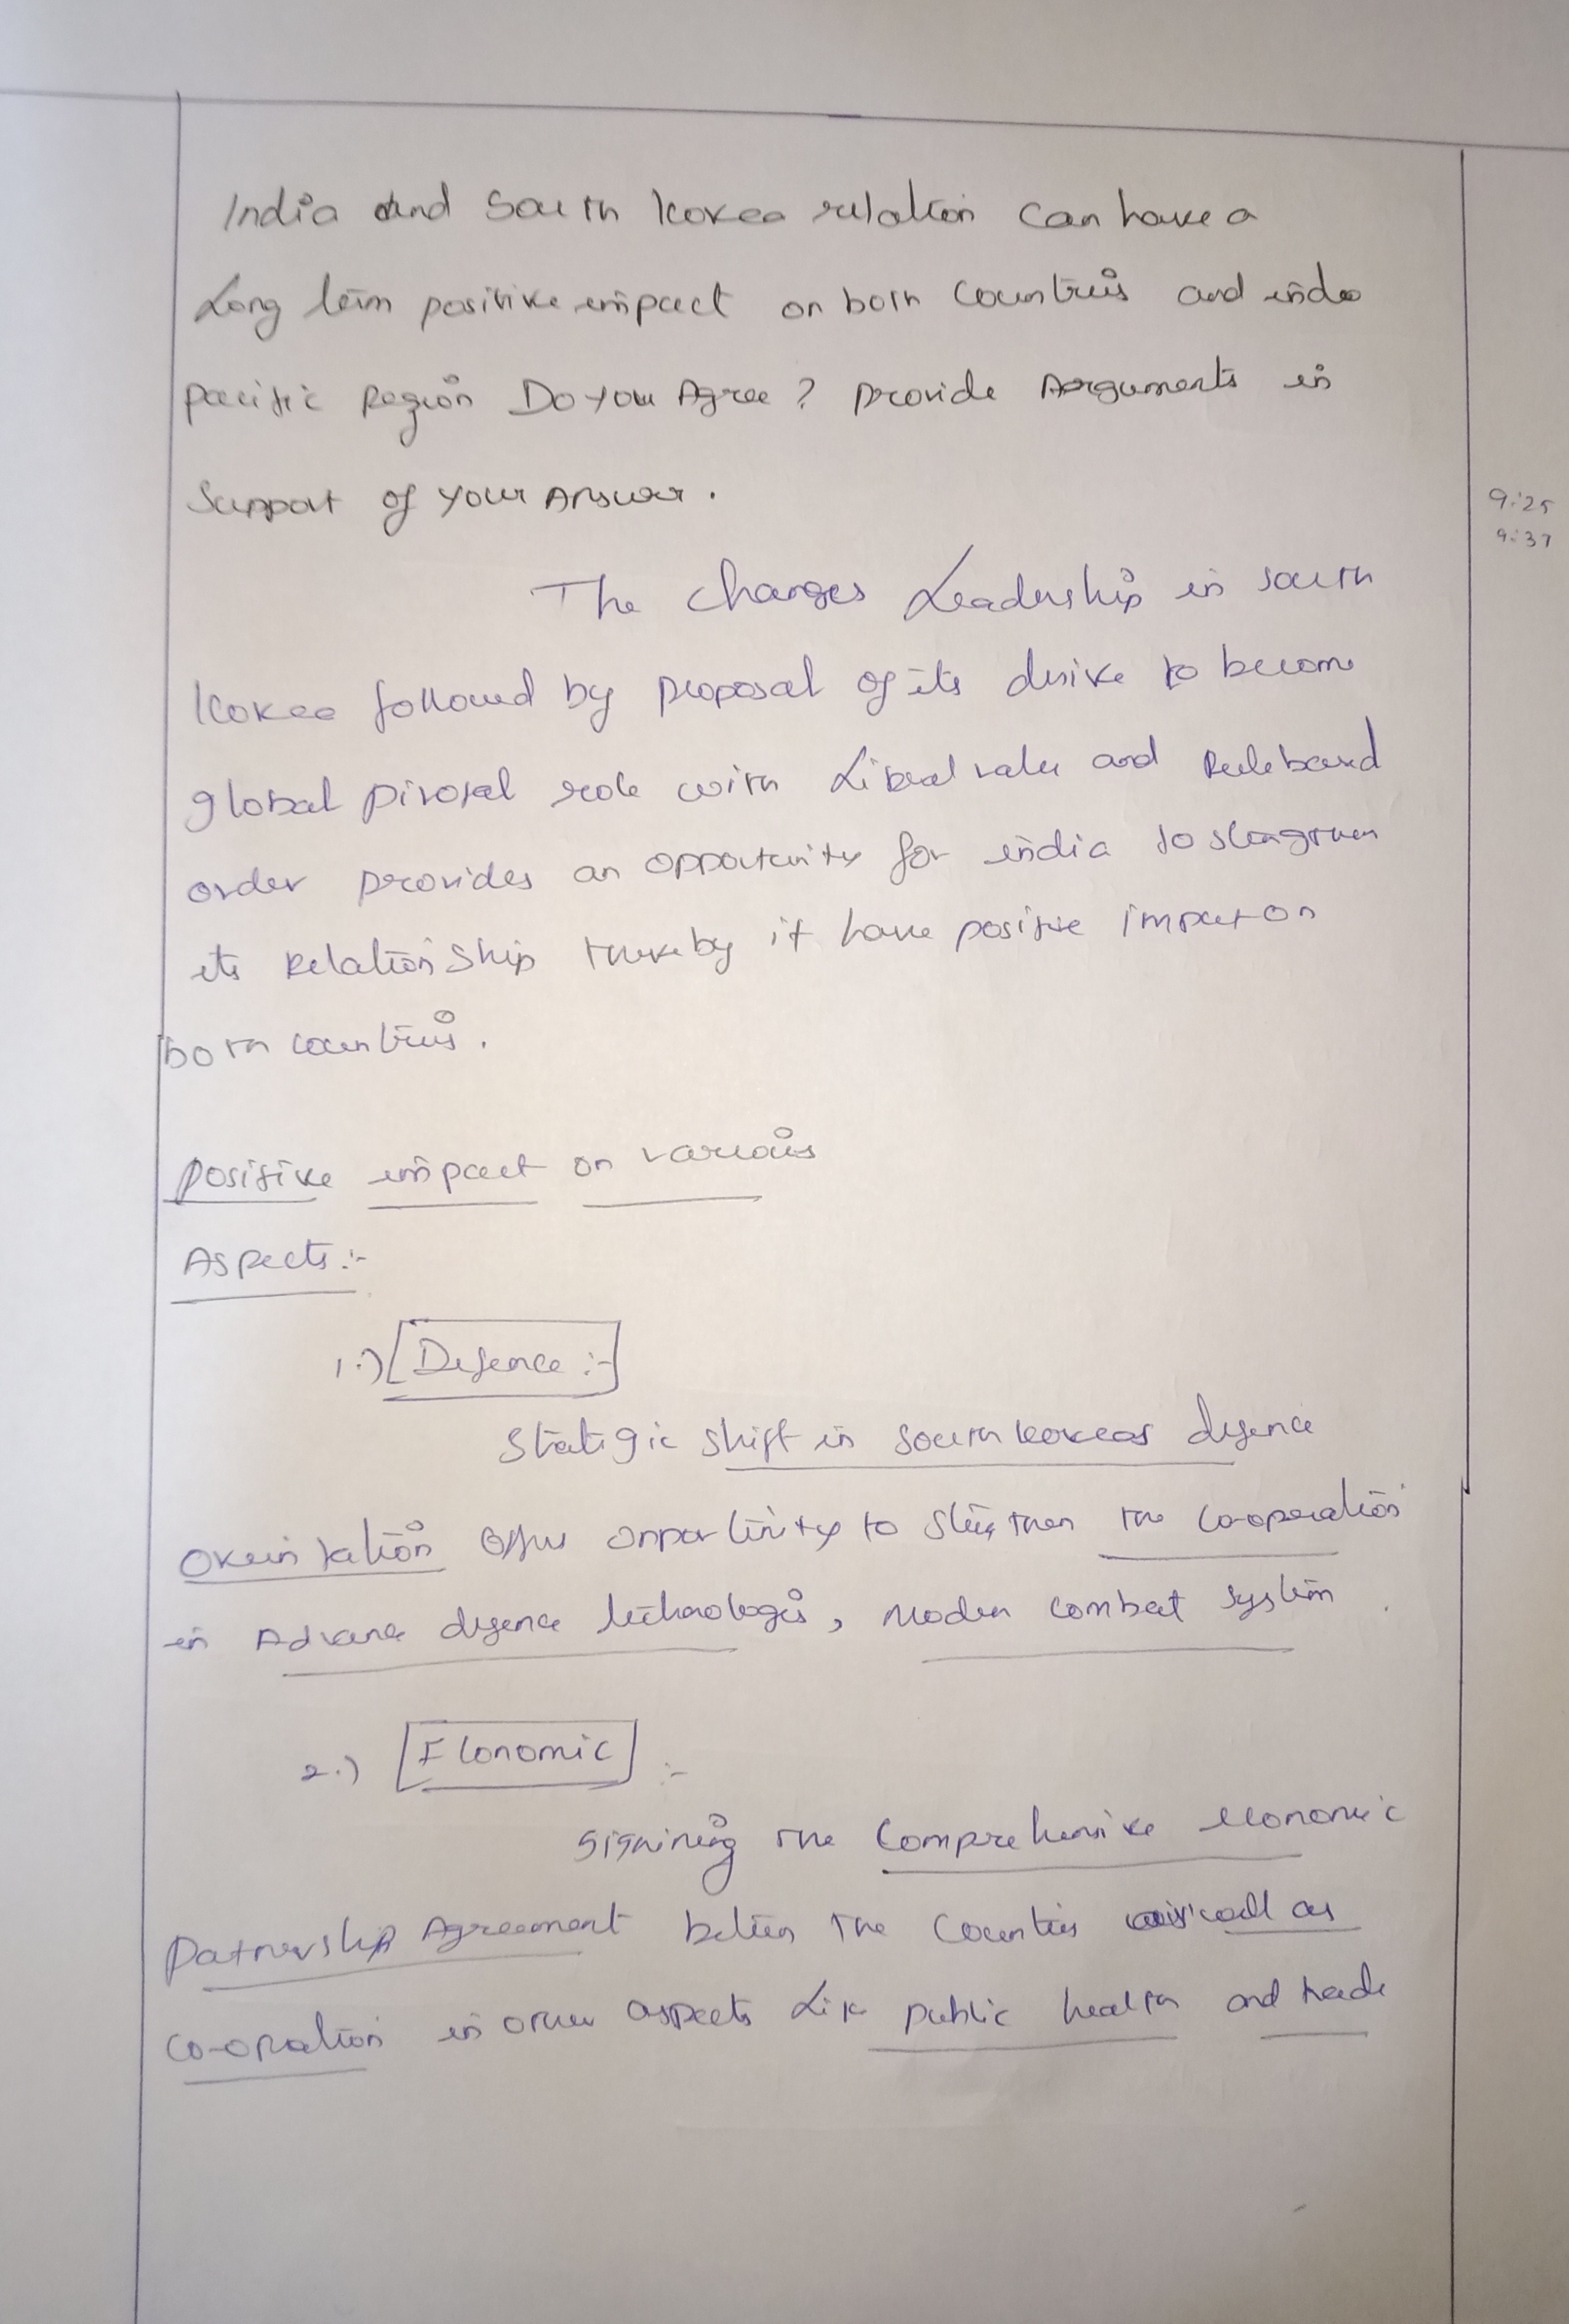 India and South Korea relation can have a
Long term positive impact on both Countries and indo
pacific Region Do you Agree ? provide Arguments in
Support of your Answer .
9:25
9:37
The changes Leadership in south
Korea followed by proposal of its desire to become
global pivotal role with Liberal value and Rule based
order provides an opportunity for india to strengthen
its Relationship thereby it have positive impact on
both countries .
positive impact on various
Aspects :-
1.) Defence :-
Strategic shift in south koreas defence
Orientation offer opportunity to the co-operation
in Advance defence technologies , Modern combat system .
2.) Economic :-
Signing the Comprehensive economic
Partnership Agreement between the Countries as well as
co-opration in other aspects Like public health and trade